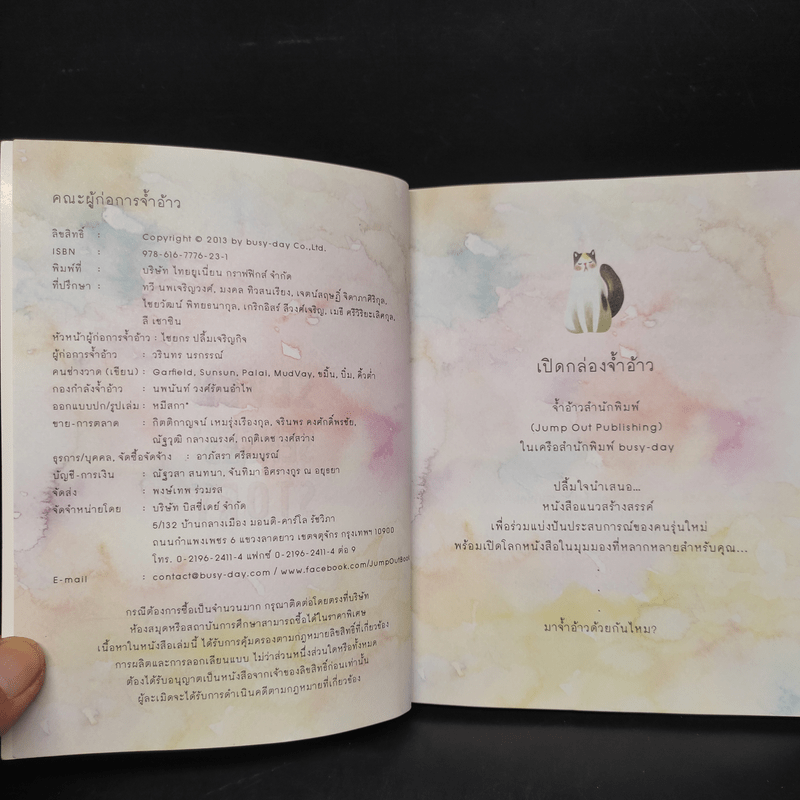 คณะผู้ก่อการจ้ำอ้าว
ลิขสิทธิ์ : Copyright © 2013 by busy-day Co.,Ltd.
ISBN : 978-616-7776-23-1
พิมพ์ที่ : บริษัท ไทยยูเนี่ยน กราฟฟิกส์ จำกัด
ที่ปรึกษา : ทวี นพเจริญวงศ์, มงคล ทิวสนเรียง, เจตน์สฤษฎิ์ จิดาภาศิริกุล,
ไชยวัฒน์ พิทยธนากุล, เกริกอิสร์ ลีวงศ์เจริญ, เมธี ศรีวิริยะเลิศกุล,
ลี เชาชิน
หัวหน้าผู้ก่อการจ้ำอ้าว : ไชยกร ปลื้มเจริญกิจ
ผู้ก่อการจ้ำอ้าว : วรินทร นรกรรณ์
คนช่างวาด (เขียน) : Garfield, Sunsun, Palai, MudVay, ขมิ้น, บิ๋ม, คิ้วต่ำ
กองกำลังจ้ำอ้าว : นพนันท์ วงศ์รัตนอำไพ
ออกแบบปก/รูปเล่ม : หมีสกา*
ขาย-การตลาด : กิตติกาญจน์ เหมรุ่งเรืองกุล, จรินพร คงศักดิ์พรชัย,
ณัฐวุฒิ กลางณรงค์, กฤติเดช วงศ์สว่าง
ธุรการ/บุคคล, จัดซื้อจัดจ้าง : อาภัสรา ศรีสมบูรณ์
บัญชี-การเงิน : ณัฐวสา สนทนา, จันทิมา อิศรางกูร ณ อยุธยา
จัดส่ง : พงษ์เทพ ร่วมรส
จัดจำหน่ายโดย : บริษัท บิสซี่เดย์ จำกัด
5/132 บ้านกลางเมือง มอนติ-คาร์โล รัชวิภา
ถนนกำแพงเพชร 6 แขวงลาดยาว เขตจตุจักร กรุงเทพฯ 10900
โทร. 0-2196-2411-4 แฟกซ์ 0-2196-2411-4 ต่อ 9
E-mail : contact@busy-day.com / www.facebook.com/JumpOutBook
กรณีต้องการซื้อเป็นจำนวนมาก กรุณาติดต่อโดยตรงที่บริษัท
ห้องสมุดหรือสถาบันการศึกษาสามารถซื้อได้ในราคาพิเศษ
เนื้อหาในหนังสือเล่มนี้ ได้รับการคุ้มครองตามกฎหมายลิขสิทธิ์ที่เกี่ยวข้อง
การผลิตและการลอกเลียนแบบ ไม่ว่าส่วนหนึ่งส่วนใดหรือทั้งหมด
ต้องได้รับอนุญาตเป็นหนังสือจากเจ้าของลิขสิทธิ์ก่อนเท่านั้น
ผู้ละเมิดจะได้รับการดำเนินคดีตามกฎหมายที่เกี่ยวข้อง
เปิดกล่องจ้ำอ้าว
จ้ำอ้าวสำนักพิมพ์
(Jump Out Publishing)
ในเครือสำนักพิมพ์ busy-day
ปลื้มใจนำเสนอ...
หนังสือแนวสร้างสรรค์
เพื่อร่วมแบ่งปันประสบการณ์ของคนรุ่นใหม่
พร้อมเปิดโลกหนังสือในมุมมองที่หลากหลายสำหรับคุณ...
.
.
.
มาจ้ำอ้าวด้วยกันไหม?